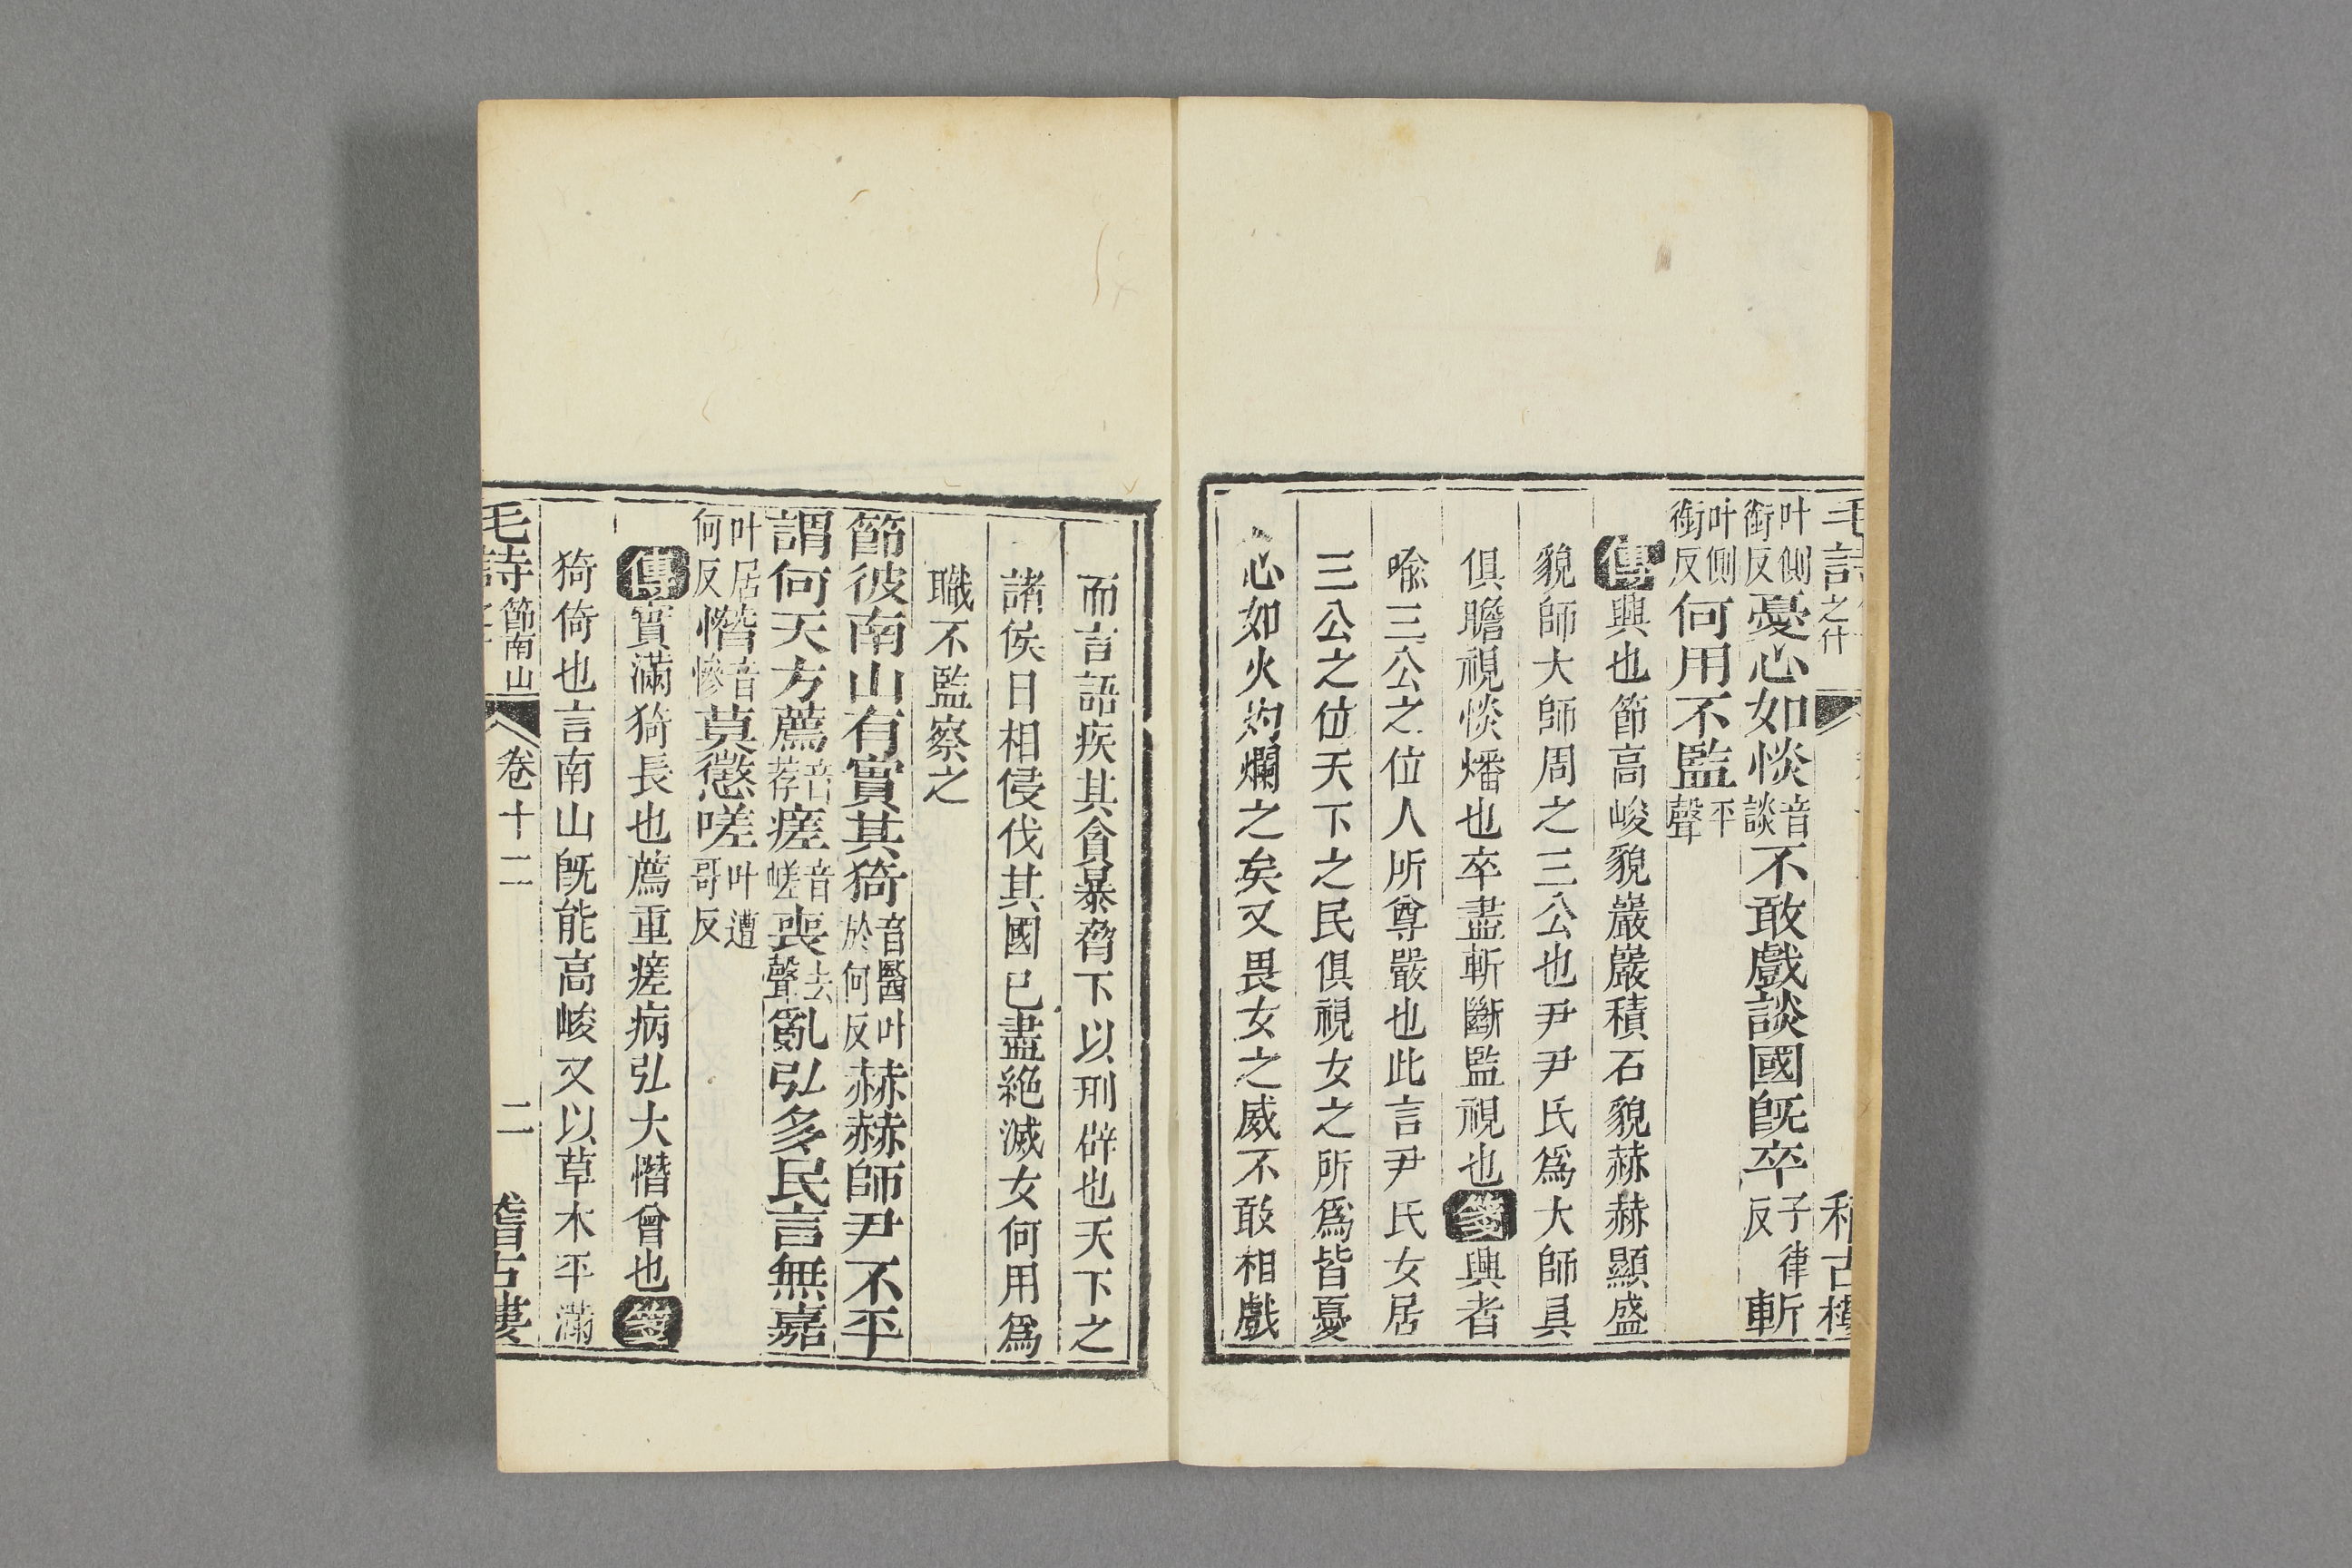 毛詩之什
叶側銜反憂心如惔音談不敢戲談國旣卒子律反斬
叶側銜反何用不監平聲
傳興也節高峻貌巖巖積石貌赫赫顯盛
貌師大師周之三公也尹尹氏爲大師具
俱瞻視惔燔也卒盡斬斷監視也箋興者
喻三公之位人所尊嚴也此言尹氏女居
三公之位天下之民俱視女之所爲皆憂
心如火灼爛之矣又畏女之威不敢相戲
而言語疾其貪暴脅下以刑辟也天下之
諸侯日相侵伐其國已盡絶滅女何用爲
職不監察之
節彼南山有實其猗音醫叶於何反赫赫師尹不平
謂何天方薦音荐瘥音嵯喪去聲亂弘多民言無嘉
叶居何反憯音慘莫懲嗟叶遭哥反
傳實滿猗長也薦重瘥病弘大憯曾也箋
猗倚也言南山旣能高峻又以草木平滿
毛詩節南山 卷十二 二 稽古樓